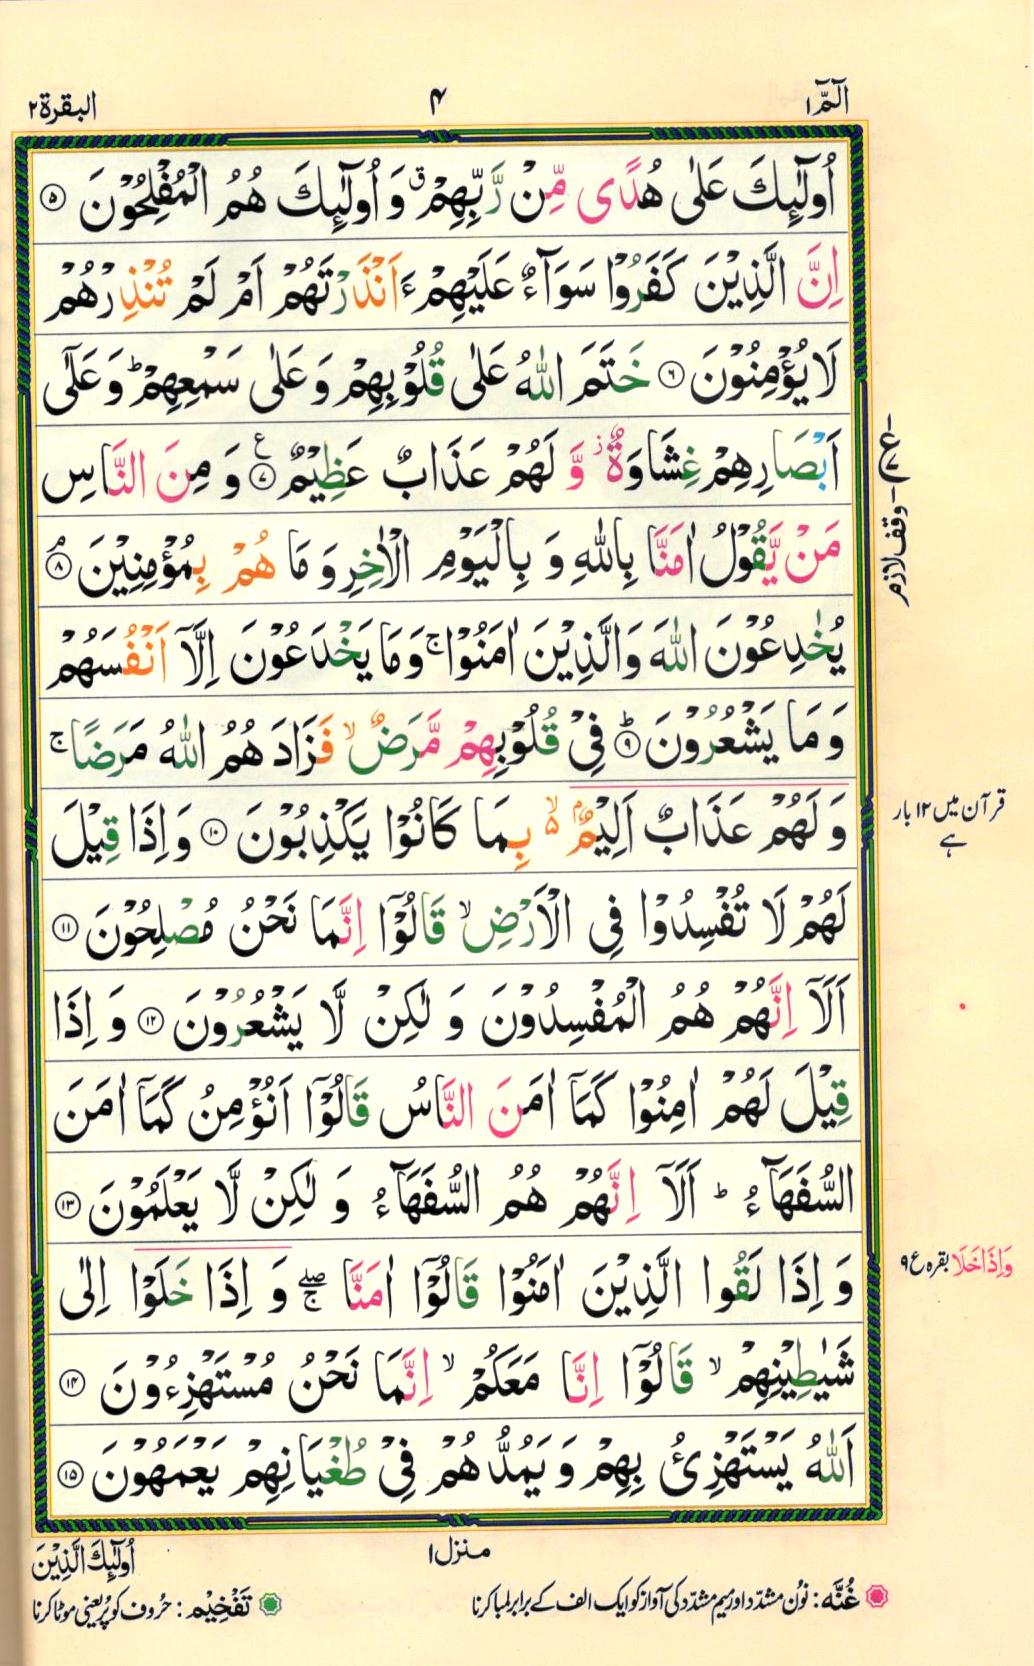 الٓمّٓ ١
٤
البقرة ٢
اُولٰٓئِكَ عَلٰى هُدًى مِّنْ رَّبِّهِمْ ۗ وَ اُولٰٓئِكَ هُمُ الْمُفْلِحُوْنَ ۝٥
اِنَّ الَّذِيْنَ كَفَرُوْا سَوَآءٌ عَلَيْهِمْ ءَاَنْذَرْتَهُمْ اَمْ لَمْ تُنْذِرْهُمْ
لَا يُؤْمِنُوْنَ ۝٦ خَتَمَ اللّٰهُ عَلٰى قُلُوْبِهِمْ وَ عَلٰى سَمْعِهِمْ ؕ وَ عَلٰٓى
اَبْصَارِهِمْ غِشَاوَةٌ ؗ وَّ لَهُمْ عَذَابٌ عَظِيْمٌ ۝٧ ع وَ مِنَ النَّاسِ
مَنْ يَّقُوْلُ اٰمَنَّا بِاللّٰهِ وَ بِالْيَوْمِ الْاٰخِرِ وَ مَا هُمْ بِمُؤْمِنِيْنَ ۘ ۝٨
ع
وقف لازم
يُخٰدِعُوْنَ اللّٰهَ وَالَّذِيْنَ اٰمَنُوْا ۚ وَ مَا يَخْدَعُوْنَ اِلَّاۤ اَنْفُسَهُمْ
وَ مَا يَشْعُرُوْنَ ؕ ۝٩ فِيْ قُلُوْبِهِمْ مَّرَضٌ ۙ فَزَادَهُمُ اللّٰهُ مَرَضًا ۚ
وَ لَهُمْ عَذَابٌ اَلِيْمٌۢ ۙ٥ بِمَا كَانُوْا يَكْذِبُوْنَ ۝١٠ وَ اِذَا قِيْلَ
قرآن میں ١٢ بار
ہے
لَهُمْ لَا تُفْسِدُوْا فِي الْاَرْضِ ۙ قَالُوْٓا اِنَّمَا نَحْنُ مُصْلِحُوْنَ ۝١١
اَلَاۤ اِنَّهُمْ هُمُ الْمُفْسِدُوْنَ وَ لٰكِنْ لَّا يَشْعُرُوْنَ ۝١٢ وَ اِذَا
قِيْلَ لَهُمْ اٰمِنُوْا كَمَاۤ اٰمَنَ النَّاسُ قَالُوْٓا اَنُؤْمِنُ كَمَاۤ اٰمَنَ
السُّفَهَآءُ ؕ اَلَاۤ اِنَّهُمْ هُمُ السُّفَهَآءُ وَ لٰكِنْ لَّا يَعْلَمُوْنَ ۝١٣
وَ اِذَا لَقُوا الَّذِيْنَ اٰمَنُوْا قَالُوْٓا اٰمَنَّا ۖۚ وَ اِذَا خَلَوْا اِلٰى
وَاِذَا خَلَا بقرہ ع ٩
شَيٰطِيْنِهِمْ ۙ قَالُوْٓا اِنَّا مَعَكُمْ ۙ اِنَّمَا نَحْنُ مُسْتَهْزِءُوْنَ ۝١٤
اَللّٰهُ يَسْتَهْزِئُ بِهِمْ وَ يَمُدُّهُمْ فِيْ طُغْيَانِهِمْ يَعْمَهُوْنَ ۝١٥
منزل ١
اُولٰٓئِكَ الَّذِيْنَ
غُنَّہ: نُون مشدّد اور میم مشدّد کی آواز کو ایک الف کے برابر لمبا کرنا
تَفْخِیْم: حروف کو پُر یعنی موٹا کرنا